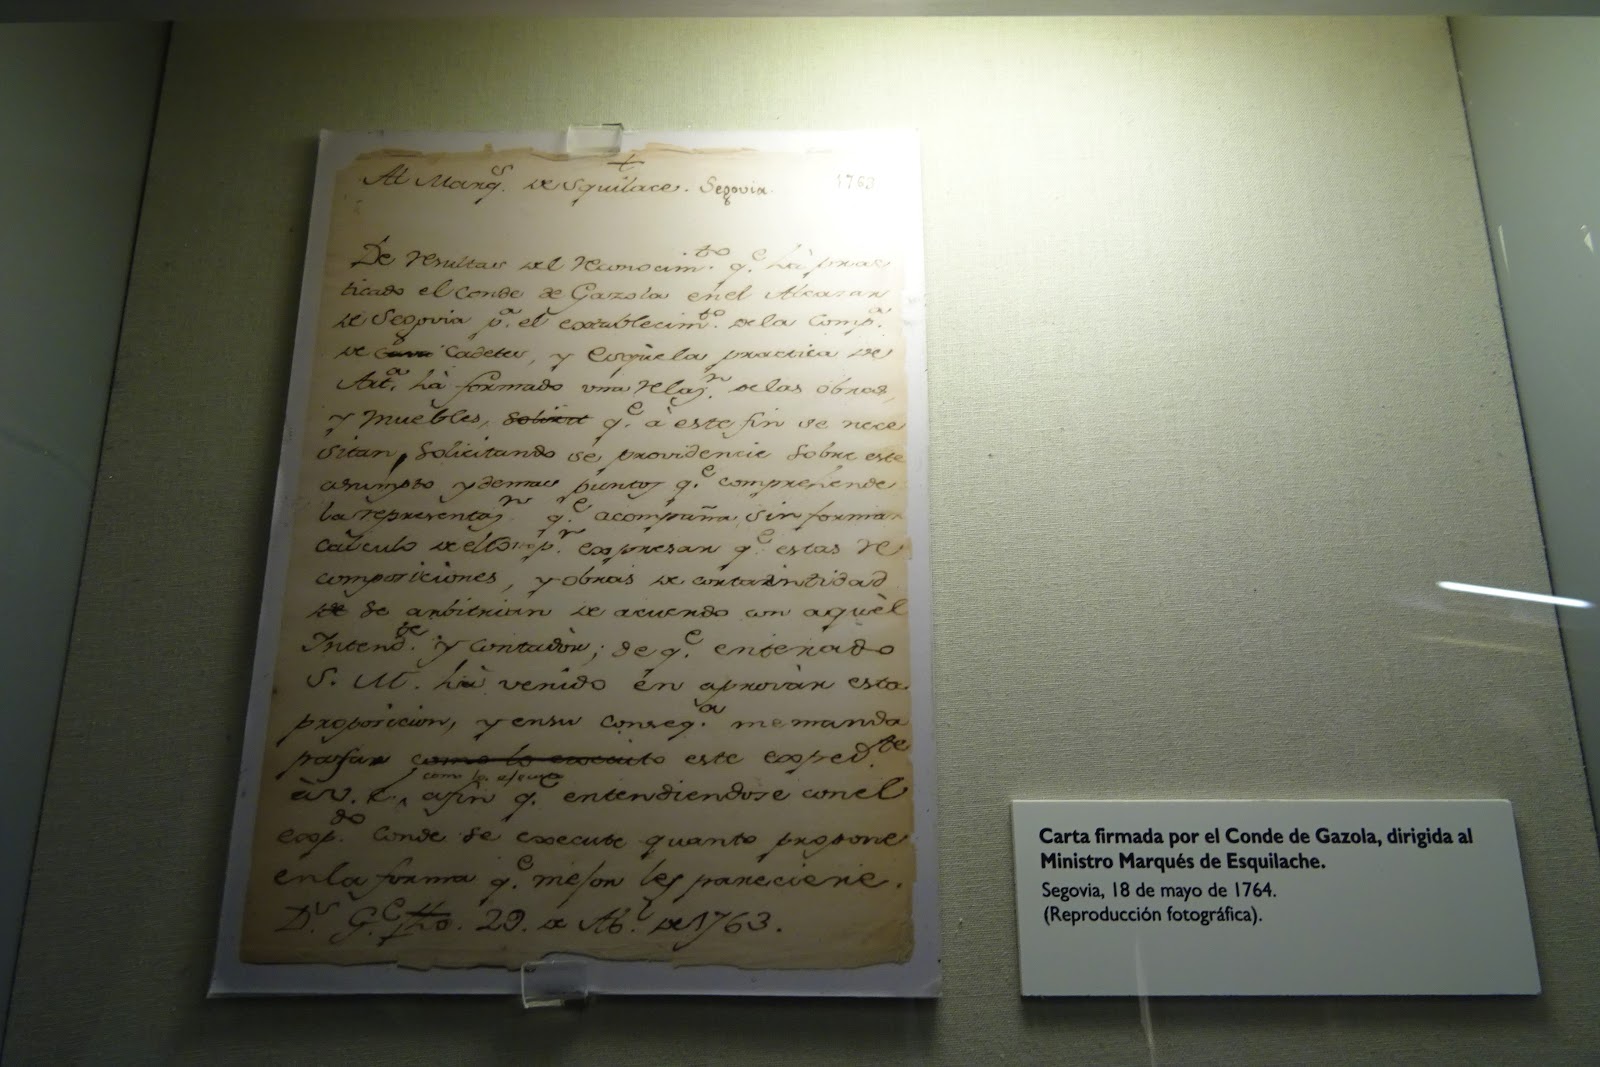 +
Al Marq.s de Squilace. Segovia. 1763
De resultas del reconocim.to q.e hà prac
ticado el Conde de Gazola en el Alcazar
de Segovia p.a el establecim.to de la Comp.a
de Cadetes, y Esqüela practica de
Art.a hà formado una relaz.n de las obras,
y muebles, solicit q.e à este fin se nece
sitan, solicitando se providencie sobre este
asumpto y demas puntos q.e comprehende
la representaz.n q.e acompaña sin formar
cálculo de ello p.r expresar q.e estas re
composiciones, y obras de corta entidad
de se arbitrian de acuerdo con aquèl
Intend.te y Contadòr; de q.e enterado
S. M. hà venido en aprovàr esta
proposicion, y en su conseq.a me manda
pasar como lo executo este exped.te
como lo executo
à V. E., afin q.e entendiendose con el
exp.do Conde se execute quanto propone
en la forma q.e mejor les pareciere.
D.s G.e 29. de Ab.l de 1763.
Carta firmada por el Conde de Gazola, dirigida al
Ministro Marqués de Esquilache.
Segovia, 18 de mayo de 1764.
(Reproducción fotográfica).